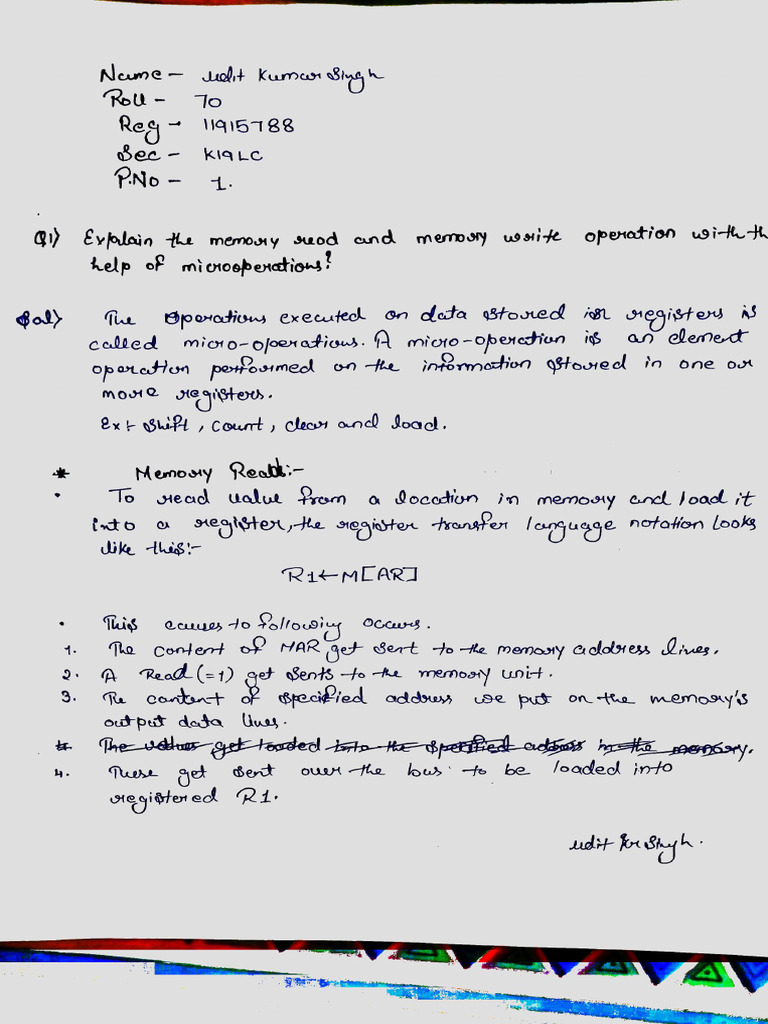 Name - Udit Kumar Singh
Roll - 70
Reg - 11915788
Sec - K19LC
P.No - 1.
Q1) Explain the memory read and memory write operation with th
help of microoperations?
Sol) The Operations executed on data stored in registers is
called micro-operations. A micro-operation is an element
operation performed on the information stored in one or
more registers.
Ex:- Shift, Count, clear and load.
* Memory Read:-
• To read value from a location in memory and load it
into a register, the register transfer language notation looks
like this:-
R1←M[AR]
• This causes to following occurs.
1. The content of MAR get sent to the memory address lines.
2. A Read (=1) get sents to the memory unit.
3. The content of specified address we put on the memory's
output data lines.
4. The values get loaded into the specified address in the memory.
4. These get sent over the bus to be loaded into
registered R1.
Udit Kr Singh.